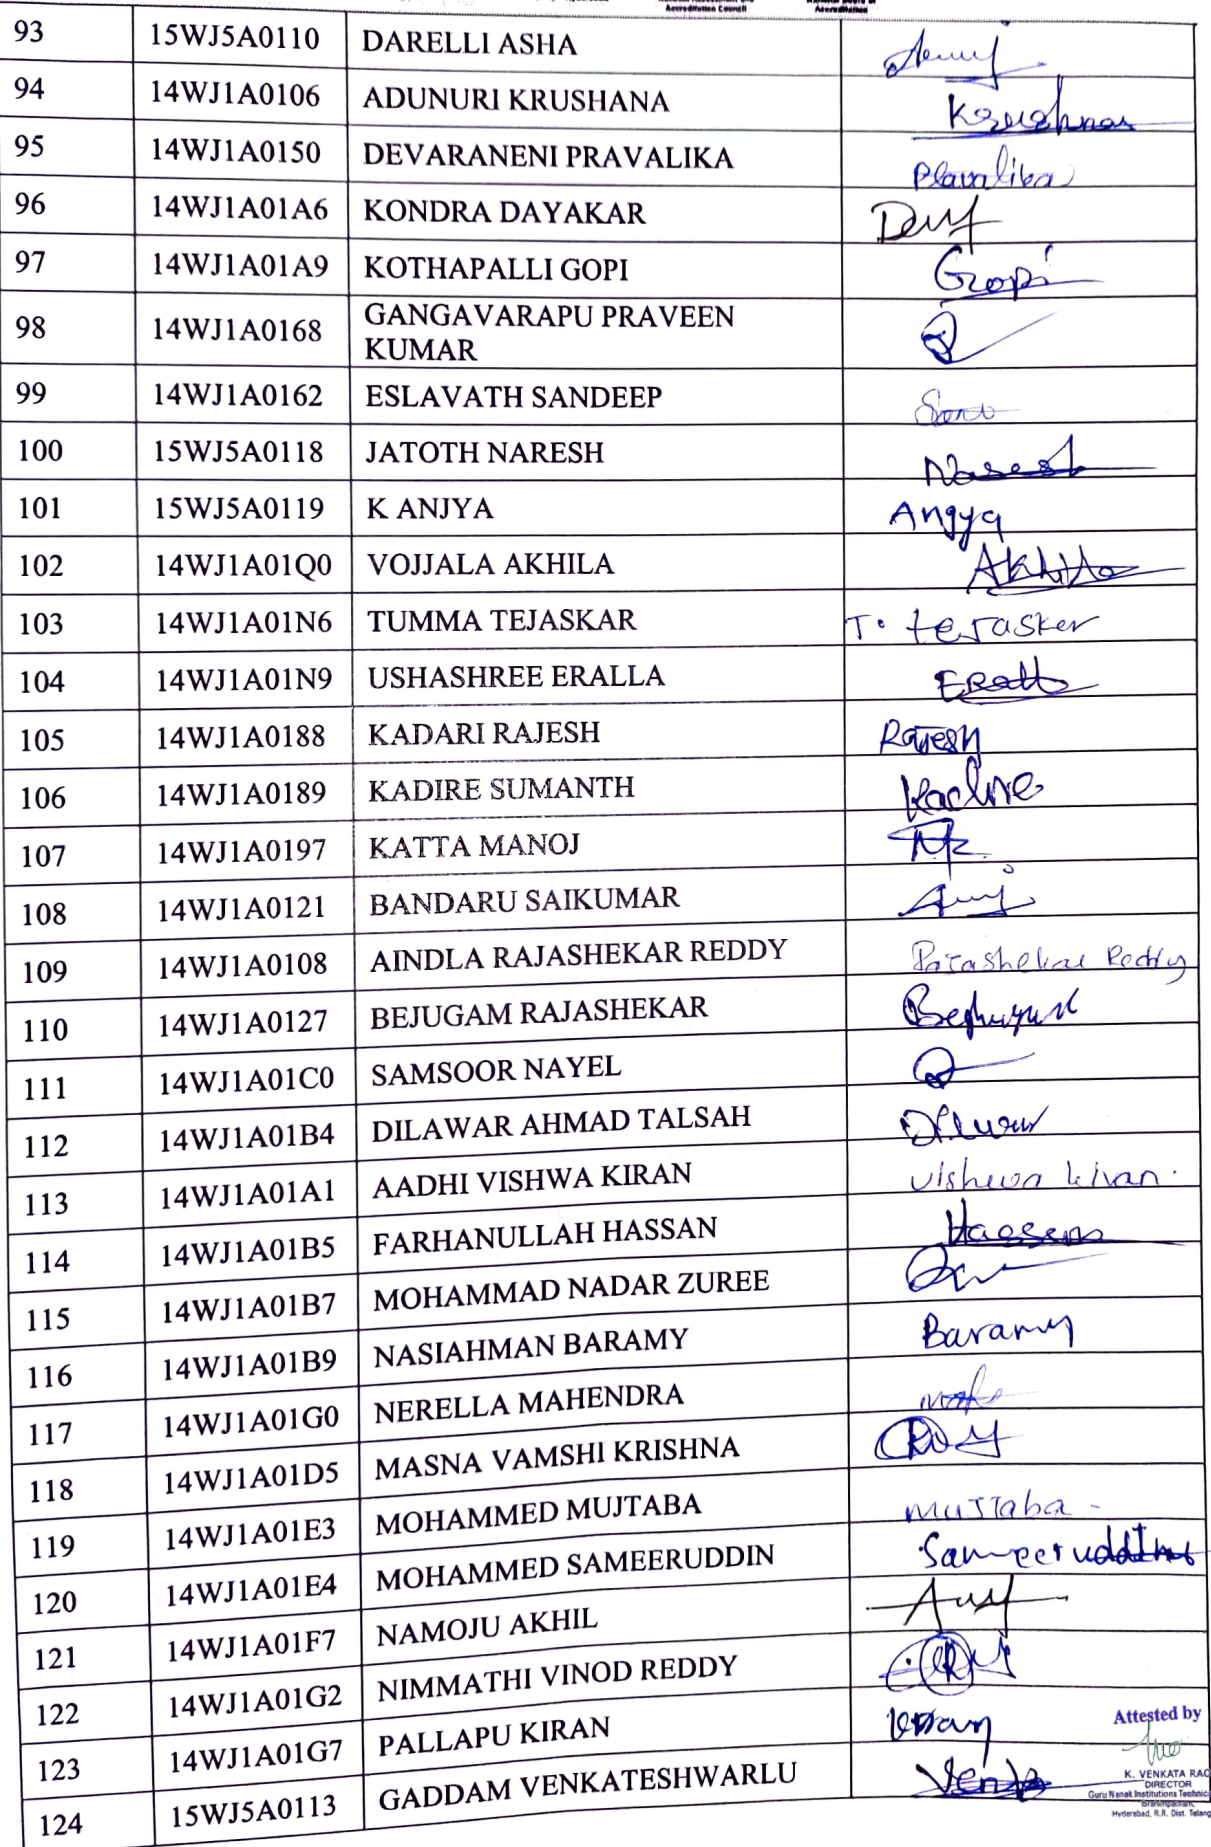 Accreditation Council
Accreditation
93 15WJ5A0110 DARELLI ASHA
94 14WJ1A0106 ADUNURI KRUSHANA Krushnar
95 14WJ1A0150 DEVARANENI PRAVALIKA Plavalika
96 14WJ1A01A6 KONDRA DAYAKAR
97 14WJ1A01A9 KOTHAPALLI GOPI Gopi
98 14WJ1A0168 GANGAVARAPU PRAVEEN
KUMAR
99 14WJ1A0162 ESLAVATH SANDEEP
100 15WJ5A0118 JATOTH NARESH Naresh
101 15WJ5A0119 K ANJYA Angya
102 14WJ1A01Q0 VOJJALA AKHILA Akhila
103 14WJ1A01N6 TUMMA TEJASKAR T. teJasker
104 14WJ1A01N9 USHASHREE ERALLA
105 14WJ1A0188 KADARI RAJESH Rajesh
106 14WJ1A0189 KADIRE SUMANTH Kadire
107 14WJ1A0197 KATTA MANOJ
108 14WJ1A0121 BANDARU SAIKUMAR
109 14WJ1A0108 AINDLA RAJASHEKAR REDDY Rajashekar Reddy
110 14WJ1A0127 BEJUGAM RAJASHEKAR
111 14WJ1A01C0 SAMSOOR NAYEL
112 14WJ1A01B4 DILAWAR AHMAD TALSAH
113 14WJ1A01A1 AADHI VISHWA KIRAN Vishwa kiran.
114 14WJ1A01B5 FARHANULLAH HASSAN
115 14WJ1A01B7 MOHAMMAD NADAR ZUREE
116 14WJ1A01B9 NASIAHMAN BARAMY Baramy
117 14WJ1A01G0 NERELLA MAHENDRA
118 14WJ1A01D5 MASNA VAMSHI KRISHNA
119 14WJ1A01E3 MOHAMMED MUJTABA MUJTaba -
120 14WJ1A01E4 MOHAMMED SAMEERUDDIN Sameeruddin
121 14WJ1A01F7 NAMOJU AKHIL
122 14WJ1A01G2 NIMMATHI VINOD REDDY
123 14WJ1A01G7 PALLAPU KIRAN Kiran
124 15WJ5A0113 GADDAM VENKATESHWARLU
Attested by
K. VENKATA RAO
DIRECTOR
Guru Nanak Institutions Technic
Ibrahimpatnam,
Hyderabad, R.R. Dist. Telang